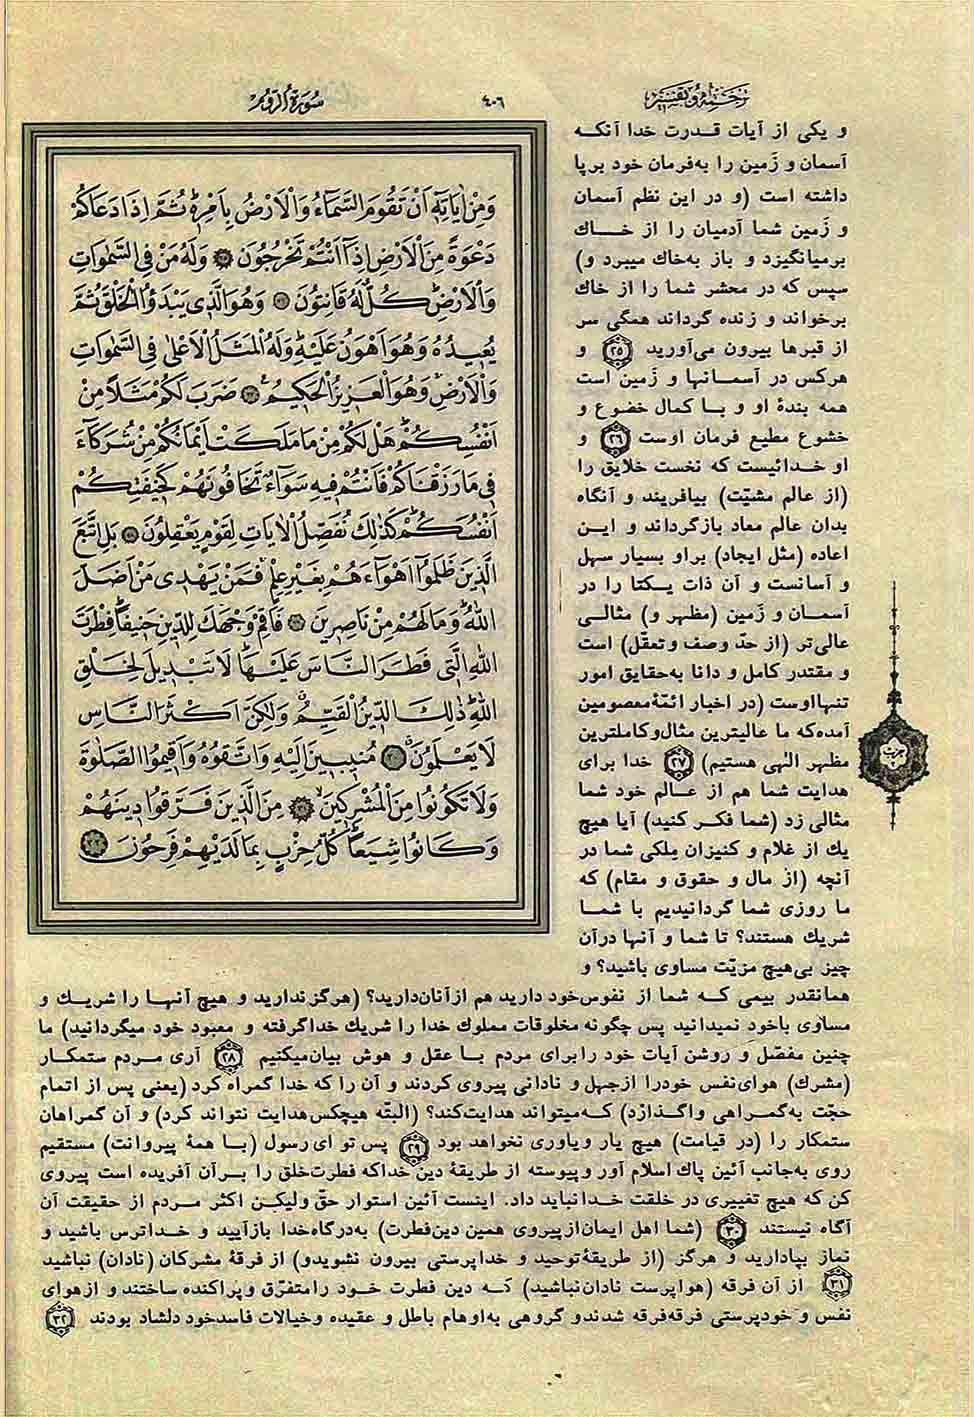 ترجمه و تفسیر
٤٠٦
سُورَةُ الرُّومِ
وَمِنْ اٰيَاتِهٖٓ اَنْ تَقُومَ السَّمَآءُ وَالْاَرْضُ بِاَمْرِهٖ ثُمَّ اِذَا دَعَاكُمْ
دَعْوَةً مِنَ الْاَرْضِ اِذَآ اَنْتُمْ تَخْرُجُونَ ٢٥ وَلَهُ مَنْ فِى السَّمٰوَاتِ
وَالْاَرْضِ كُلٌّ لَهُ قَانِتُونَ ٢٦ وَهُوَ الَّذٖى يَبْدَؤُا الْخَلْقَ ثُمَّ
يُعٖيدُهُ وَهُوَ اَهْوَنُ عَلَيْهِ وَلَهُ الْمَثَلُ الْاَعْلٰى فِى السَّمٰوَاتِ
وَالْاَرْضِ وَهُوَ الْعَزٖيزُ الْحَكٖيمُ ٢٧ ضَرَبَ لَكُمْ مَثَلًا مِنْ
اَنْفُسِكُمْ هَلْ لَكُمْ مِنْ مَا مَلَكَتْ اَيْمَانُكُمْ مِنْ شُرَكَآءَ
فٖى مَا رَزَقْنَاكُمْ فَاَنْتُمْ فٖيهِ سَوَآءٌ تَخَافُونَهُمْ كَخٖيفَتِكُمْ
اَنْفُسَكُمْ كَذٰلِكَ نُفَصِّلُ الْاٰيَاتِ لِقَوْمٍ يَعْقِلُونَ ٢٨ بَلِ اتَّبَعَ
الَّذٖينَ ظَلَمُوٓا اَهْوَآءَهُمْ بِغَيْرِ عِلْمٍ فَمَنْ يَهْدٖى مَنْ اَضَلَّ
اللّٰهُ وَمَا لَهُمْ مِنْ نَاصِرٖينَ ٢٩ فَاَقِمْ وَجْهَكَ لِلدّٖينِ حَنٖيفًا فِطْرَتَ
اللّٰهِ الَّتٖى فَطَرَ النَّاسَ عَلَيْهَا لَا تَبْدٖيلَ لِخَلْقِ
اللّٰهِ ذٰلِكَ الدّٖينُ الْقَيِّمُ وَلٰكِنَّ اَكْثَرَ النَّاسِ
لَا يَعْلَمُونَ ٣٠ مُنٖيبٖينَ اِلَيْهِ وَاتَّقُوهُ وَاَقٖيمُوا الصَّلٰوةَ
وَلَا تَكُونُوا مِنَ الْمُشْرِكٖينَ ٣١ مِنَ الَّذٖينَ فَرَّقُوا دٖينَهُمْ
وَكَانُوا شِيَعًا كُلُّ حِزْبٍ بِمَا لَدَيْهِمْ فَرِحُونَ ٣٢
و یکی از آیات قدرت خدا آنکه
آسمان و زَمین را به‌فرمان خود برپا
داشته است (و در این نظم آسمان
و زَمین شما آدمیان را از خاك
برمیانگیزد و باز به‌خاك میبرد و)
سپس که در محشر شما را از خاك
برخواند و زنده گرداند همگی سر
از قبرها بیرون می‌آورید ٢٥ و
هرکس در آسمانها و زَمین است
همه بندهٔ او و با کمال خضوع و
خشوع مطیع فرمان اوست ٢٦ و
او خدائیست که نخست خلایق را
(از عالم مشیّت) بیافریند و آنگاه
بدان عالم معاد بازگرداند و این
اعاده (مثل ایجاد) براو بسیار سهل
و آسانست و آن ذات یکتا را در
آسمان و زَمین (مظهر و) مثالی
عالی‌تر (از حدّ وصف و تعقّل) است
و مقتدر کامل و دانا به‌حقایق امور
تنهااوست (در اخبار ائمّهٔ معصومین
آمده‌که ما عالیترین مثال و کاملترین
مظهر الٰهی هستیم) ٢٧ خدا برای
هدایت شما هم از عالم خود شما
مثالی زد (شما فکر کنید) آیا هیچ
یك از غلام و کنیزان مِلکی شما در
آنچه (از مال و حقوق و مقام) که
ما روزی شما گردانیدیم با شما
شریك هستند؟ تا شما و آنها درآن
چیز بی‌هیچ مزیّت مساوی باشید؟ و
همانقدر بیمی که شما از نفوس‌خود دارید هم ازآنان‌دارید؟ (هرگز ندارید و هیچ آنها را شریك و
مساوی باخود نمیدانید پس چگونه مخلوقات مملوك خدا را شریك خداگرفته و معبود خود میگردانید) ما
چنین مفصّل و روشن آیات خود را برای مردم با عقل و هوش بیان‌میکنیم ٢٨ آری مردم ستمکار
(مشرك) هوای‌نفس خودرا ازجهل و نادانی پیروی کردند و آن را که خدا گمراه کرد (یعنی پس از اتمام
حجّت به‌گمراهی واگذارد) که‌میتواند هدایت‌کند؟ (البتّه هیچکس‌هدایت نتواند کرد) و آن گمراهان
ستمکار را (در قیامت) هیچ یار ویاوری نخواهد بود ٢٩ پس تو ای‌رسول (با همهٔ پیروانت) مستقیم
روی به‌جانب آئین پاك اسلام آور وپیوسته از طریقهٔ دین خداکه فطرت‌خلق را برآن آفریده است پیروی
کن که هیچ تغییری در خلقت خدانباید داد. اینست آئین استوار حق ولیکن اکثر مردم از حقیقت آن
آگاه نیستند ٣٠ (شما اهل ایمان‌ازپیروی همین دین‌فطرت) به‌درگاه‌خدا بازآیید و خداترس باشید و
نماز بپادارید و هرگز (از طریقهٔ توحید و خداپرستی بیرون نشویدو) از فرقهٔ مشرکان (نادان) نباشید
٣١ از آن فرقه (هواپرست نادان‌نباشید) که دین فطرت خود را متفرّق و پراکنده ساختند و ازهوای
نفس و خودپرستی فرقه‌فرقه شدندو گروهی به‌اوهام باطل و عقیده وخیالات فاسدخود دلشاد بودند ٣٢